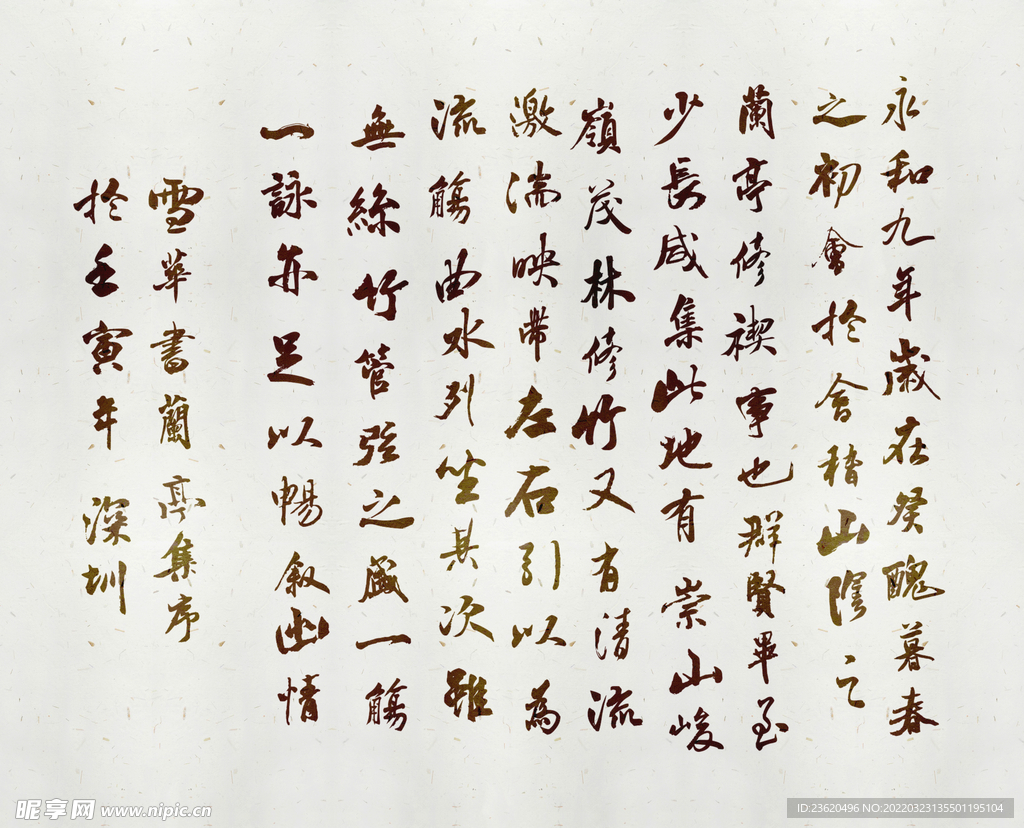 永和九年歲在癸醜暮春
之初會於會稽山陰之
蘭亭修禊事也群賢畢至
少長咸集此地有崇山峻
嶺茂林修竹又有清流
激湍映帶左右引以為
流觴曲水列坐其次雖
無絲竹管弦之盛一觴
一詠亦足以暢叙幽情
雪華書蘭亭集序
於壬寅年 深圳
昵享网 www.nipic.cn
ID:23620496 NO:20220323135501195104